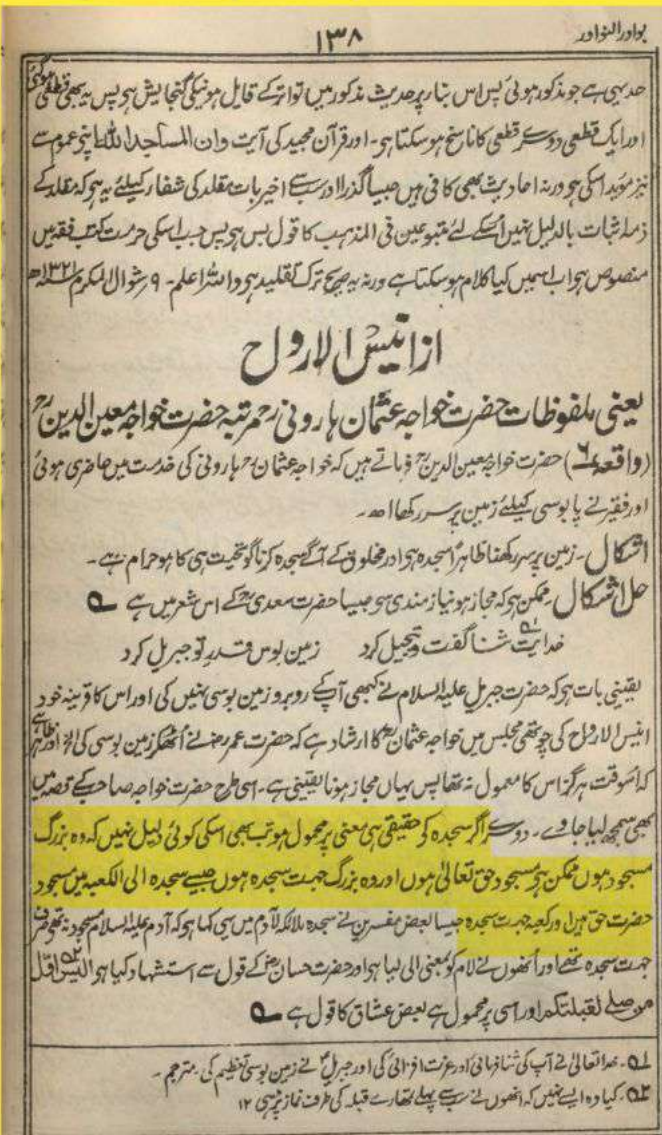 بوادر النوادر
۱۳۸
حدیہی ہے جو مذکور ہوئی پس اس بنا پر حدیث مذکور میں تواتر کے قایل ہونیکی گنجایش ہی پس یہ بھی قطعی ہوگئی
اور ایک قطعی دوسرے قطعی کا ناسخ ہو سکتا ہی۔ اور قرآن مجید کی آیت وان المساجد للہ اپنی عموم سے
نیز مؤید اسکی ہی ورنہ احادیث بھی کافی ہیں جیسا گذرا اور سب سے اخیر بات مقلد کی شفار کیلئے یہ ہو کہ مقلد کے
ذمہ اثبات بالدلیل نہیں اُسکے لئے متبوعین فی المذہب کا قول بس ہی پس جب اسکی حرمت کتب فقہ میں
منصوص ہو اب اسمیں کیا کلام ہو سکتا ہے ورنہ یہ صریح ترک تقلید ہی واللہ اعلم۔ ۹ رشوال المکرم ۱۳۲۱ھ
از انیس الارواح
یعنی ملفوظات حضرت خواجہ عثمان ہارونیؒ مرتبہ حضرت خواجہ معین الدینؒ
(واقعہ ۶) حضرت خواجہ معین الدینؒ فرماتے ہیں کہ خواجہ عثمانؒ ہارونی کی خدمت میں حاضری ہوئی
اور فقیر نے پابوسی کیلئے زمین پر سر رکھا اھ۔
اشکال۔ زمین پر سر رکھنا ظاہراً سجدہ ہی اور مخلوق کے آگے سجدہ کرنا گو تحیت ہی کا ہو حرام ہے۔
حل اشکال۔ ممکن ہو کہ مجاز ہو نیازمندی سی جیسا حضرت سعدیؒ کے اس شعر میں ہے ؎
خدایت ثنا گفت و تبجیل کرد زمین بوس قدر تو جبریل کرد
یقینی بات ہو کہ حضرت جبریل علیہ السلام نے کبھی آپ کے روبرو زمین بوسی نہیں کی اور اس کا قرینہ خود
انیس الارواح کی چوتھی مجلس میں خواجہ عثمانؒ کا ارشاد ہے کہ حضرت عمرؓ نے اُٹھکر زمین بوسی کی الخ اور ظاہر ہے
کہ اُسوقت ہرگز اس کا معمول نہ تھا پس یہاں مجاز ہونا یقینی ہے۔ اسی طرح حضرت خواجہ صاحب کے قصہ میں
بھی سمجھ لیا جاوے۔ دوسرے اگر سجدہ کو حقیقی ہی معنی پر محمول ہو تب بھی اسکی کوئی دلیل نہیں کہ وہ بزرگ
مسجود ہوں ممکن ہو مسجود حق تعالیٰ ہوں اور وہ بزرگ جہت سجدہ ہوں جیسے سجدہ الی الکعبہ میں مسجود
حضرت حق ہیں اور کعبہ جہت سجدہ جیسا بعض مفسرین نے سجدہ ملائکہ لآدم میں یہی کہا ہو کہ آدم علیہ السلام مسجود نہ تھے صرف
جہت سجدہ تھے اور اُنھوں نے لام کو بمعنی الی لیا ہو اور حضرت حسانؓ کے قول سے استشہاد کیا ہو الیس اوّل
من صلے لقبلتکم اور اسی پر محمول ہے بعض عشاق کا قول ہے ؎
۱؎ خدا تعالیٰ نے آپ کی ثنا فرمائی اور عزت افزائی کی اور جبریلؑ نے زمین بوسی تعظیم کی۔ مترجم۔
۲؎ کیا وہ ایسے نہیں کہ انھوں نے سب سے پہلے تمھارے قبلہ کی طرف نماز پڑھی ۱۲